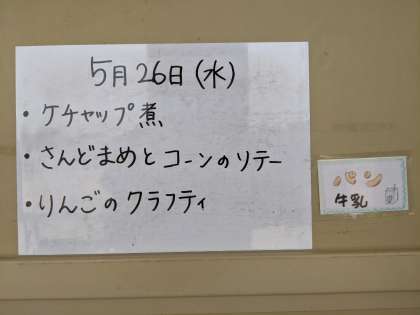 5月26日(水)
・ケチャップ煮
・さんどまめとコーンのソテー
・りんごのクラフティ
パン
牛乳